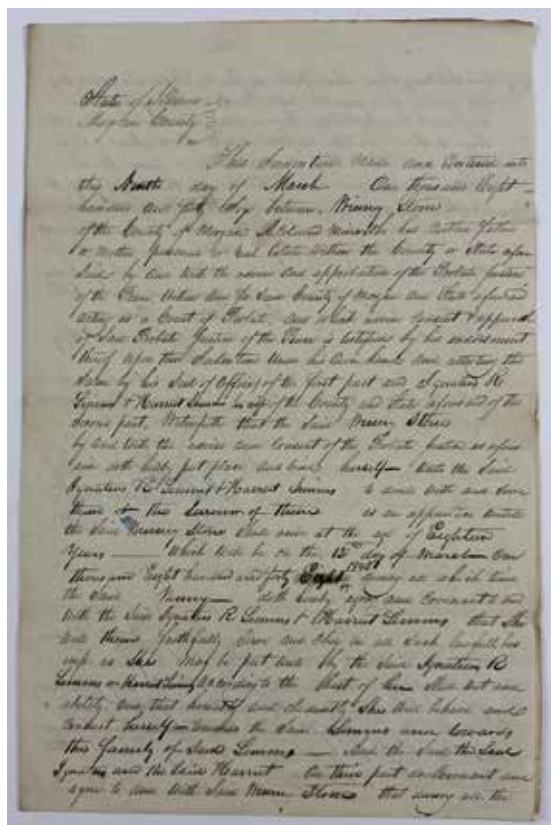 State of Illinois
Morgan County
This Indenture made and Entered into
this Ninth day of March One thousand Eight
hundred and forty between Winney Stone
of the County of Morgan
or Mother, possessed no real Estate within the County or State afore
Said by and with the advice and approbation of the Probate Justice
of the Peace within and for Said County of Morgan and State aforesaid
acting as a Court of Probate, and which said consent & approval
of Said Probate Justice of the Peace is testified by his endorsement
hereof upon this Indenture Under his own hand and attesting the
Same by his Seal of Office, of the first part and Ignatius R
Simms & Harriet Simms his wife of the County and State aforesaid of the
Second part, Witnesseth that the Said Winney Stone
by and with the advice and consent of the Probate Justice as afore
said doth hereby put place and bind herself unto the Said
Ignatius R Simms & Harriet Simms to dwell with and Serve
them & the Survivor of them as an apprentice untill
the Said Winney Stone Shall arive at the age of Eighteen
Years which Will be on the 12th day of March One
thousand Eight hundred and forty Eight during all which time
the Said Winney doth hereby agree and Covenant to and
With the Said Ignatius R Simms & Harriet Simms that She
Will them faithfully Serve and Obey in all Such lawfull
as She May be put unto by the Said Ignatius R
Simms or Harriet Simms According to the Best of her Skill and
ability and that honestly and She Will behave and
conduct herself towards the Said Simms and towards
the family of Said Simms And the Said
Ignatius and the Said Harriet On their part do Covenant and
agree to and With Said Stone that during all the